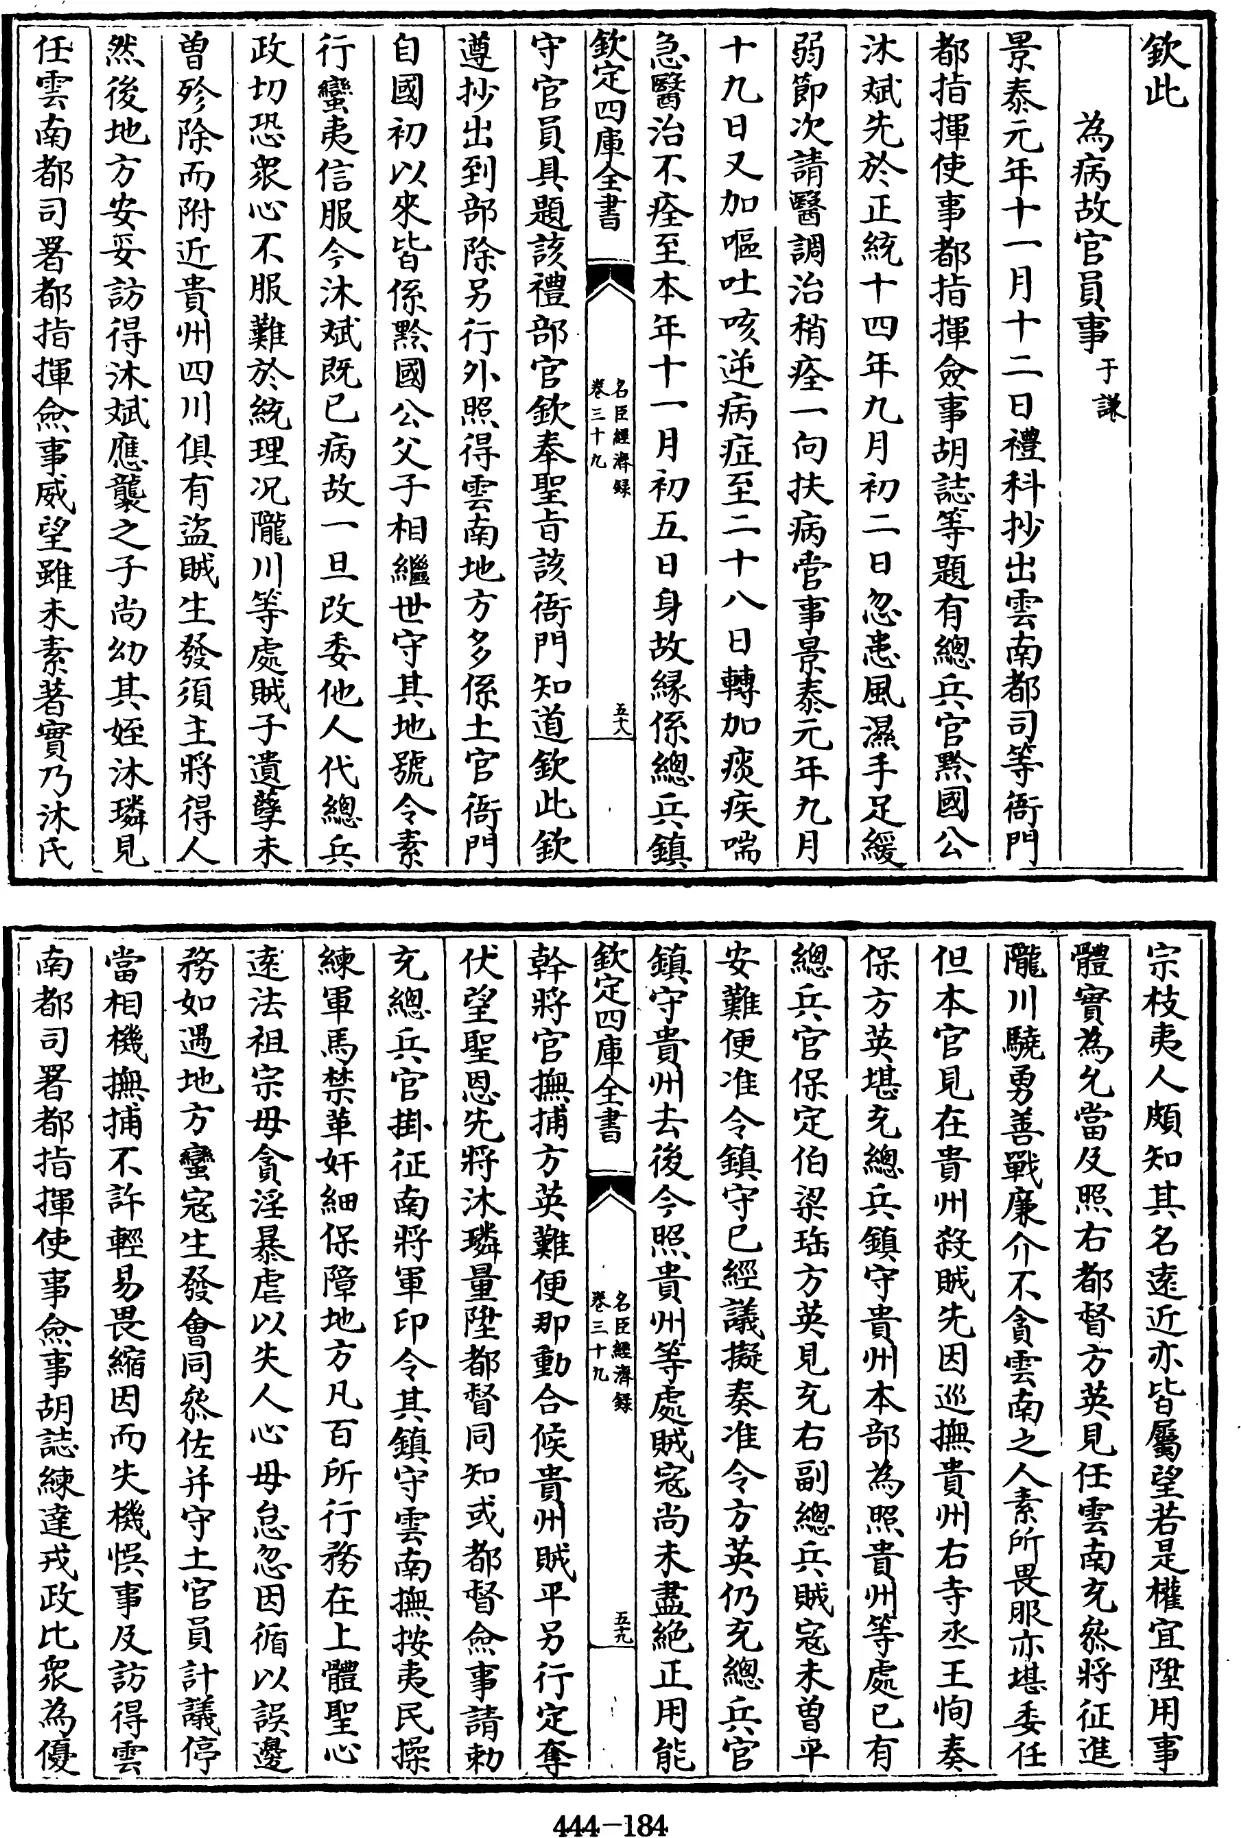 欽此
為病故官員事于謙
景泰元年十一月十二日禮科抄出雲南都司等衙門
都指揮使事都指揮僉事胡誌等題有總兵官黔國公
沐斌先於正統十四年九月初二日忽患風濕手足緩
弱節次請醫調治稍痊一向扶病管事景泰元年九月
十九日又加嘔吐咳逆病症至二十八日轉加痰疾喘
急醫治不痊至本年十一月初五日身故緣係總兵鎮
欽定四庫全書
名臣經濟録
卷三十九
五十八
守官員具題該禮部官欽奉聖旨該衙門知道欽此欽
遵抄出到部除另行外照得雲南地方多係土官衙門
自國初以來皆係黔國公父子相繼世守其地號令素
行蠻夷信服今沐斌既已病故一旦改委他人代總兵
政切恐衆心不服難於統理况隴川等處賊子遺孽未
曽殄除而附近貴州四川俱有盗賊生發須主將得人
然後地方安妥訪得沐斌應襲之子尚幼其姪沐璘見
任雲南都司署都指揮僉事威望雖未素著實乃沐氏
宗枝夷人頗知其名遠近亦皆屬望若是權宜陞用事
體實為允當及照右都督方英見任雲南充叅將征進
隴川驍勇善戰亷介不貪雲南之人素所畏服亦堪委任
但本官見在貴州殺賊先因巡撫貴州右寺丞王恂奏
保方英堪充總兵鎮守貴州本部為照貴州等處已有
總兵官保定伯梁珤方英見充右副總兵賊寇未曽平
安難便准令鎮守已經議擬奏准令方英仍充總兵官
鎮守貴州去後今照貴州等處賊寇尚未盡絶正用能
欽定四庫全書
名臣經濟録
卷三十九
五十九
幹將官撫捕方英難便那動合候貴州賊平另行定奪
伏望聖恩先將沐璘量陞都督同知或都督僉事請勅
充總兵官掛征南將軍印令其鎮守雲南撫按夷民操
練軍馬禁革奸細保障地方凡百所行務在上體聖心
逺法祖宗毋貪淫暴虐以失人心毋怠忽因循以誤邊
務如遇地方蠻寇生發會同叅佐并守土官員計議停
當相機撫捕不許輕易畏縮因而失機悞事及訪得雲
南都司署都指揮使事僉事胡誌練達戎政比衆為優
444-184